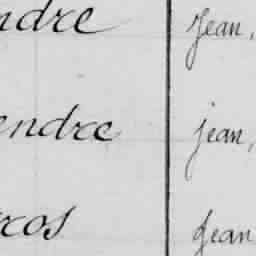 ndre Jean,
endre jean,
ros Jean